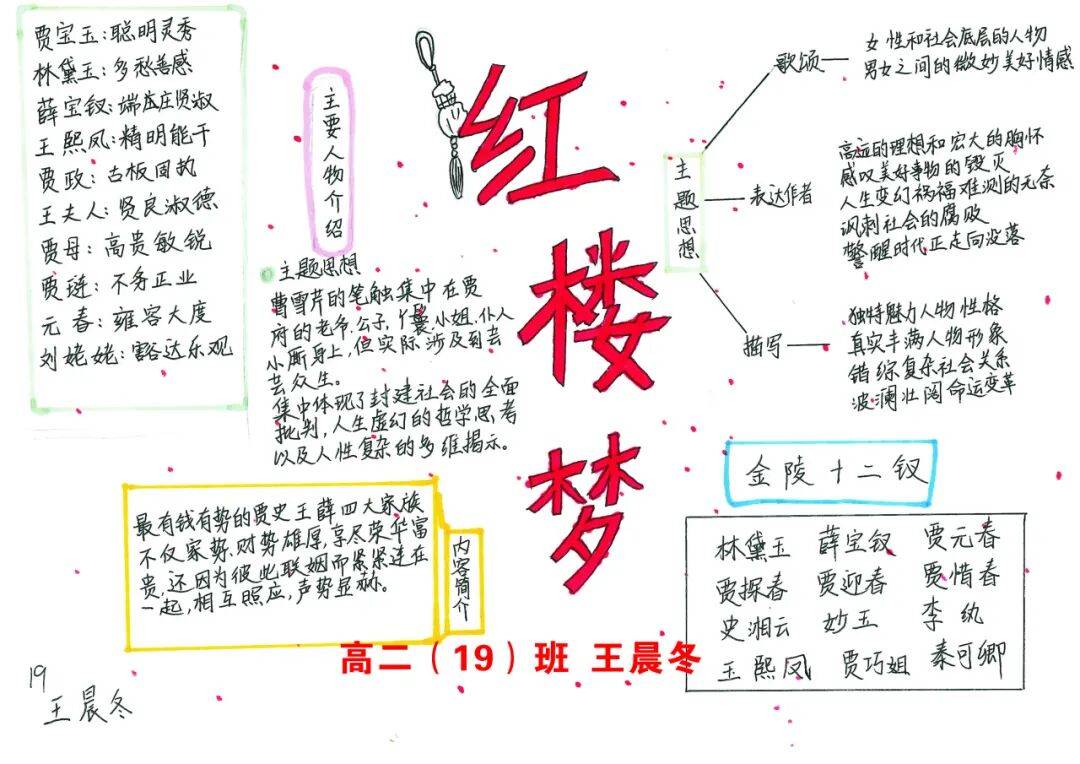 贾宝玉:聪明灵秀
林黛玉:多愁善感
薛宝钗:端庄贤淑
王熙凤:精明能干
贾政:古板固执
王夫人:贤良淑德
贾母:高贵敏锐
贾琏:不务正业
元春:雍容大度
刘姥姥:豁达乐观
主要人物介绍
主题思想
曹雪芹的笔触集中在贾
府的老爷,公子,丫鬟,小姐,仆人
小厮身上,但实际涉及到芸
芸众生。
集中体现了封建社会的全面
批判,人生虚幻的哲学思考
以及人性复杂的多维揭示。
红楼梦
主题思想
歌颂
女性和社会底层的人物
男女之间的微妙美好情感
表达作者
高远的理想和宏大的胸怀
感叹美好事物的毁灭
人生变幻祸福难测的无奈
讽刺社会的腐败
警醒时代正走向没落
描写
独特魅力人物性格
真实丰满人物形象
错综复杂社会关系
波澜壮阔命运变革
最有钱有势的贾史王薛四大家族
不仅家势、财势雄厚,享尽荣华富
贵,还因为彼此联姻而紧紧连在
一起,相互照应,声势显赫。
内容简介
金陵十二钗
林黛玉 薛宝钗 贾元春
贾探春 贾迎春 贾惜春
史湘云 妙玉 李纨
王熙凤 贾巧姐 秦可卿
高二(19)班 王晨冬
19
王晨冬